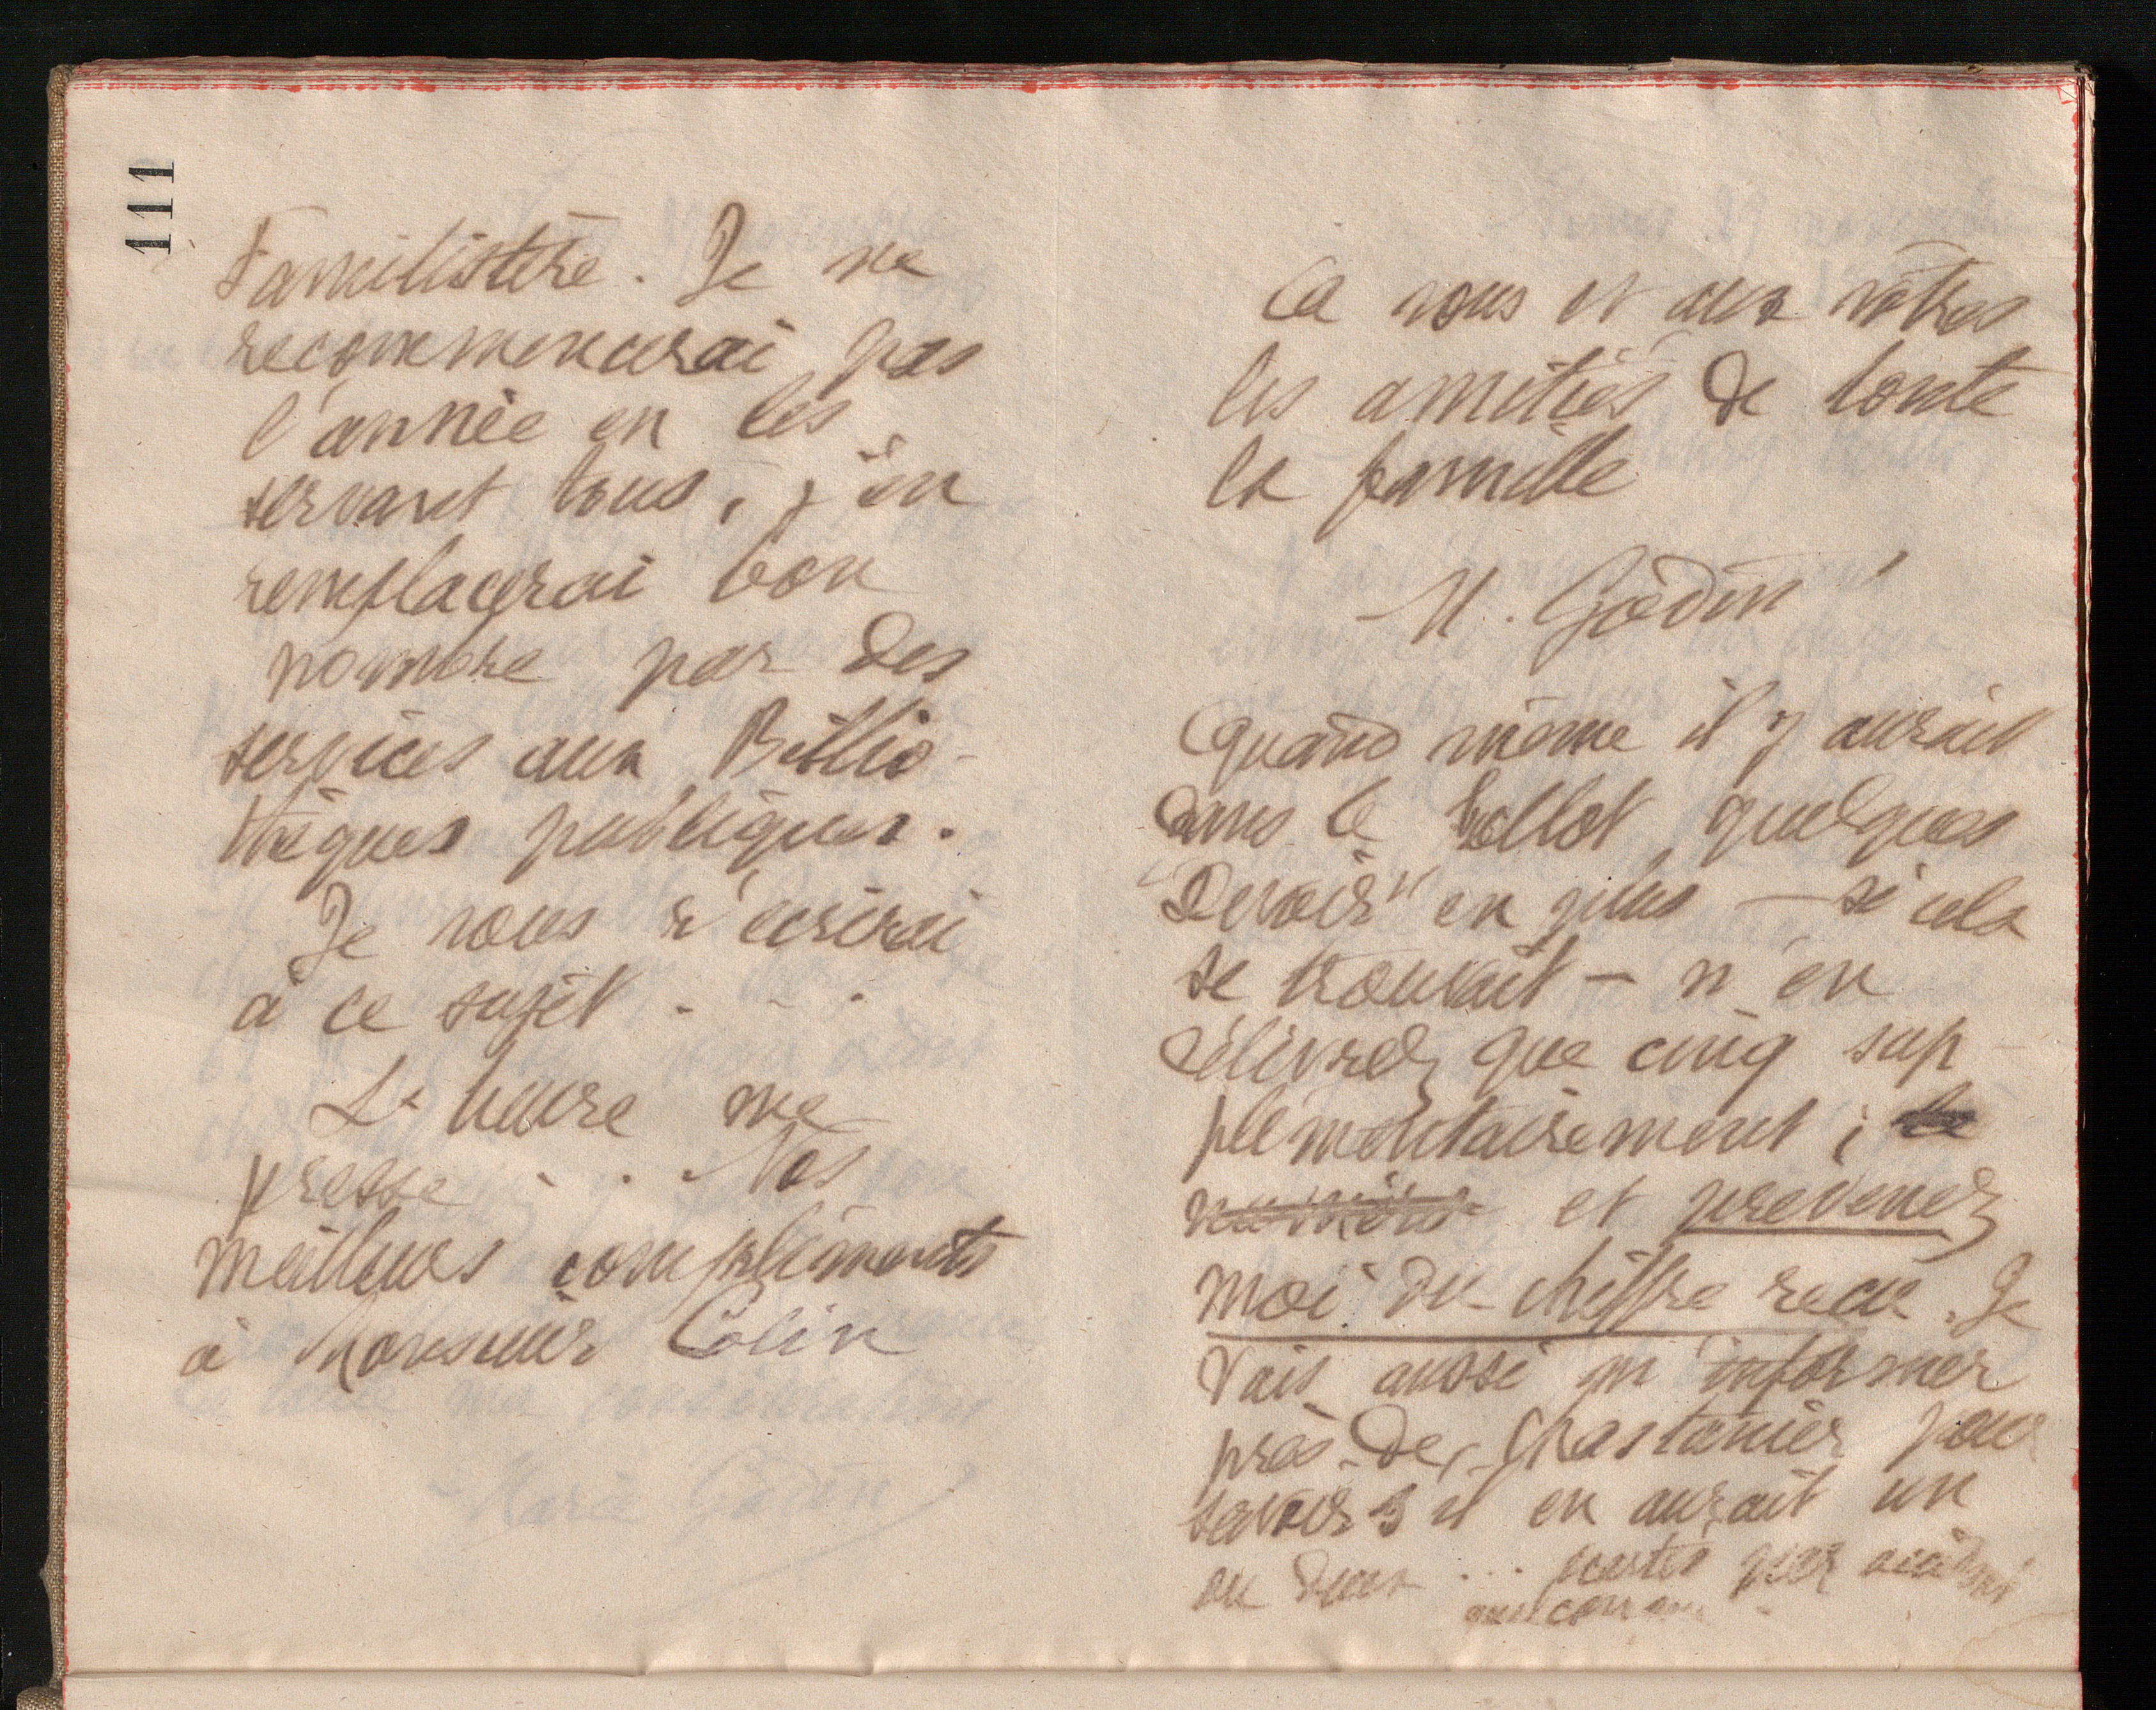 111
Familistère. Je ne
recommencerai pas
l'année en les
servant tous, j'en
remplacerai bon
nombre par des
services aux Biblio-
thèques publiques.
Je vous r'écrirai
à ce sujet . - .
L'heure me
presse - . . Nos
meilleurs compliments
à Monsieur Colin
à vous et aux vôtres
les amitiés de toute
la famille
M. Godin
Quand même il y aurait
dans le ballot quelques
"Devoir" en plus — si cela
se trouvait — n'en
délivrez que cinq sup-
plémentairement ; le
et prevenez
moi du chiffre reçu. Je
vais aussi m'informer
près de Chastanier pour
savoir s'il en aurait un
ou deux ... portés par accident